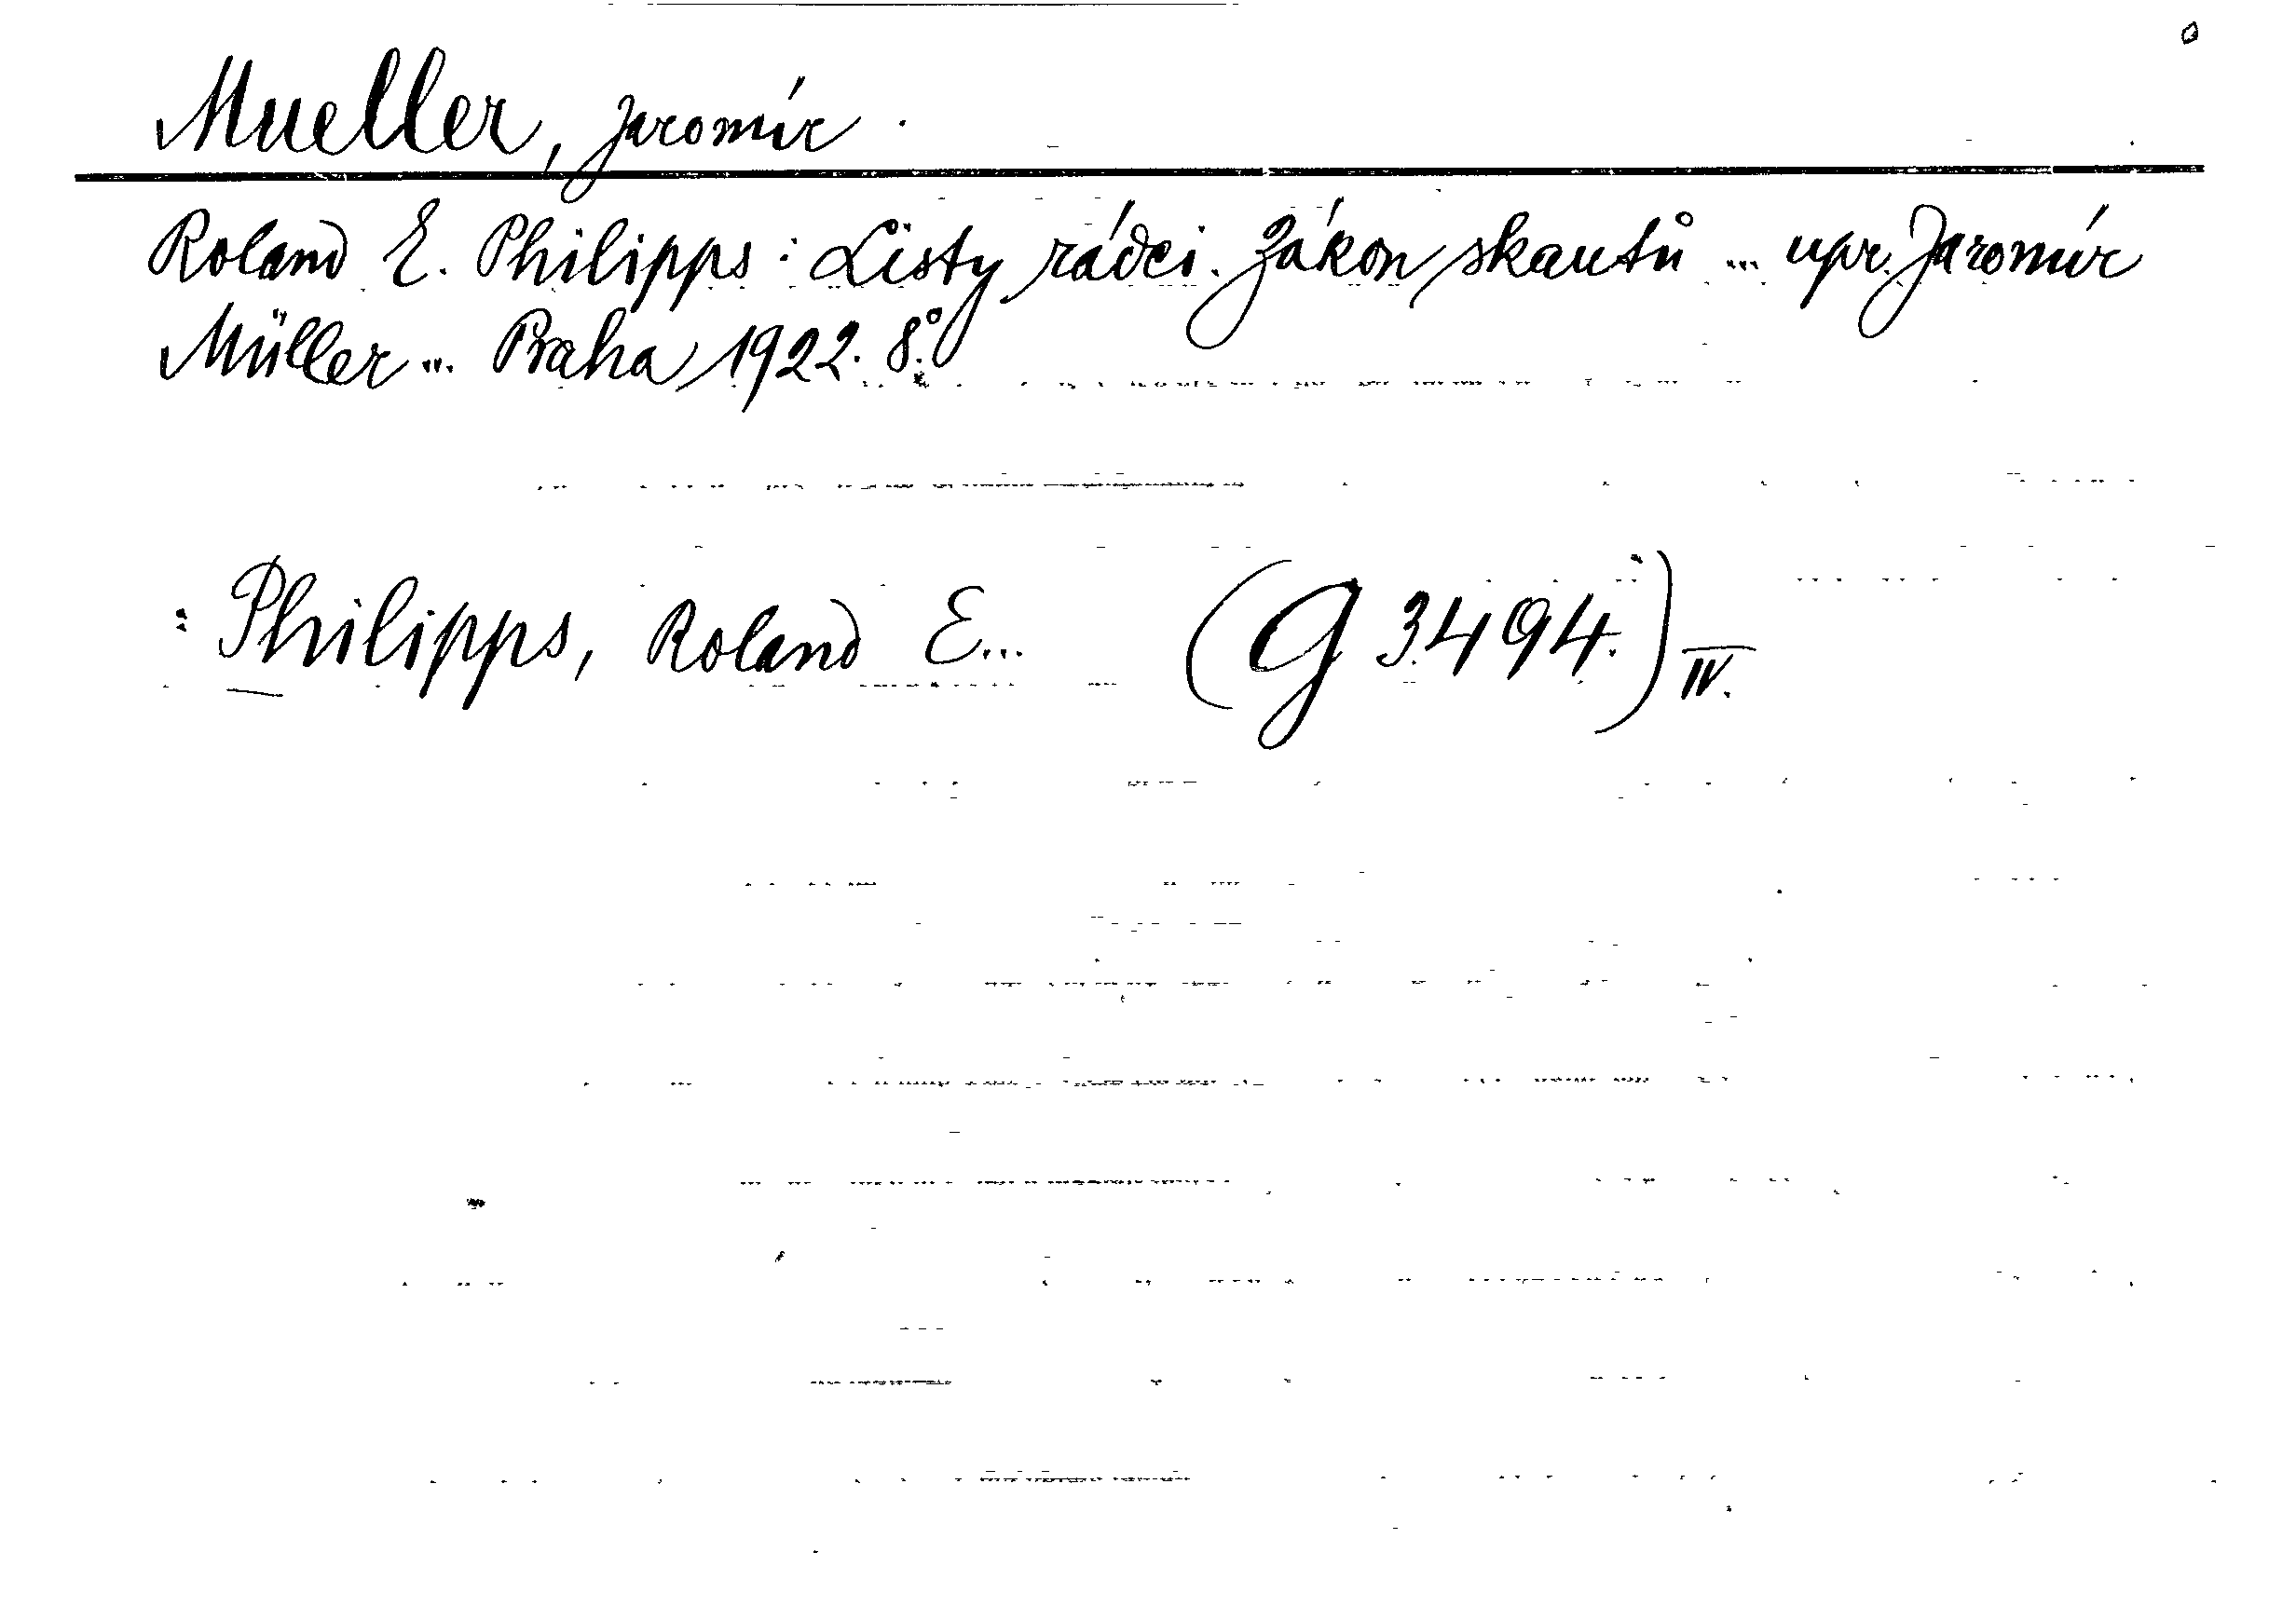 Mueller, Jaromír.
Roland E. Philipps: Listy rádci. Zákon skautů ... upr. Jaromír
Müller ... Praha 1922. 8°.
: Philipps, Roland E... (G 3494.) IV.